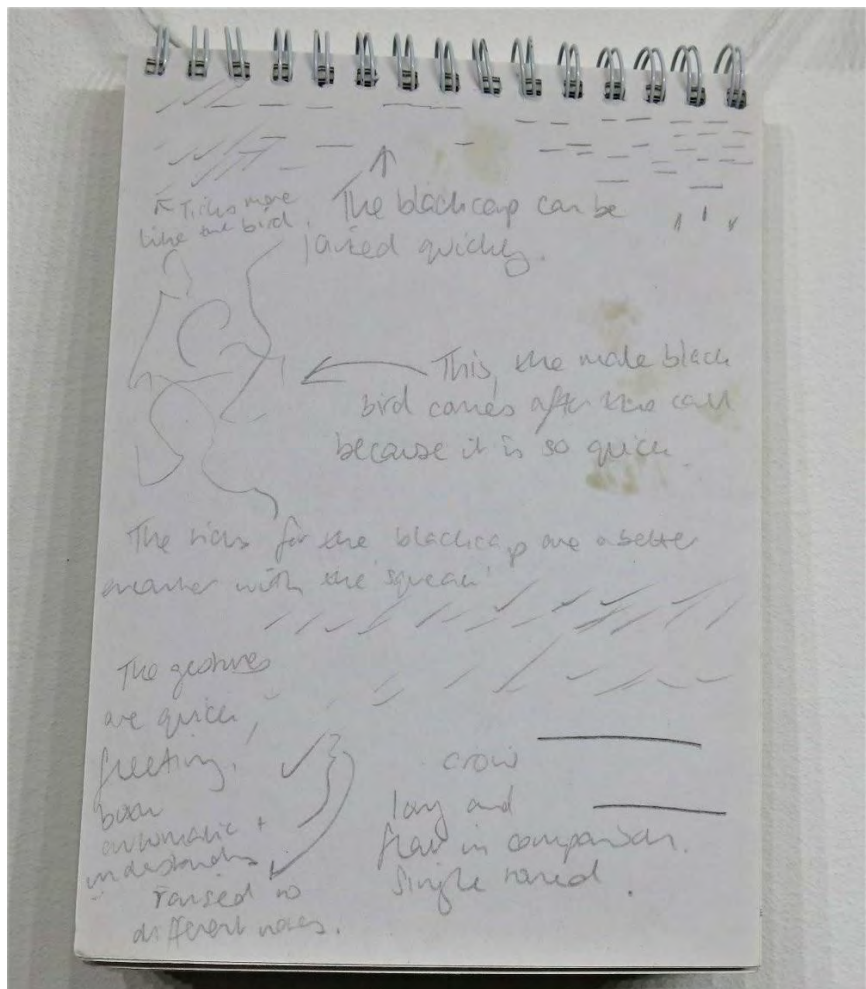 ↖ Ticks more
like the bird.
The blackcap can be
quickly.
This, the male black
bird comes after the call
because it is so quick
The ticks for the blackcap are a better
with the 'squeak'
The gestures
are quick,
fleeting,
both
automatic +
raised to
different notes.
crow
long and
flat in comparison.
Single noted.